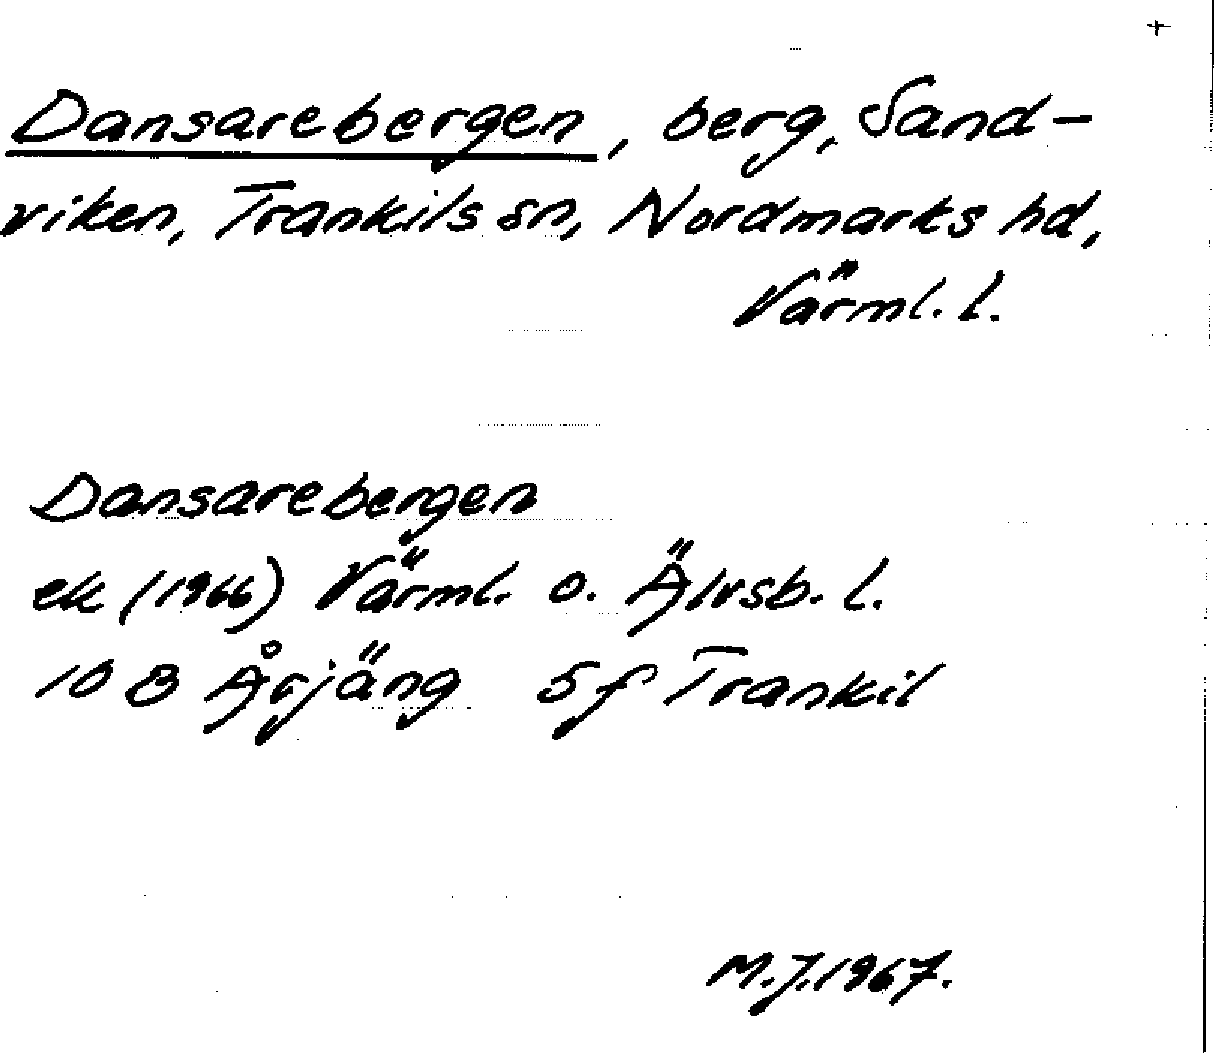 +
Dansarebergen, berg, Sand-
viken, Trankils sn, Nordmarks hd,
Värml. l.
Dansarebergen
ek (1966) Värml. o. Älvsb. l.
10 B Årjäng 5 f Trankil
M.J. 1967.